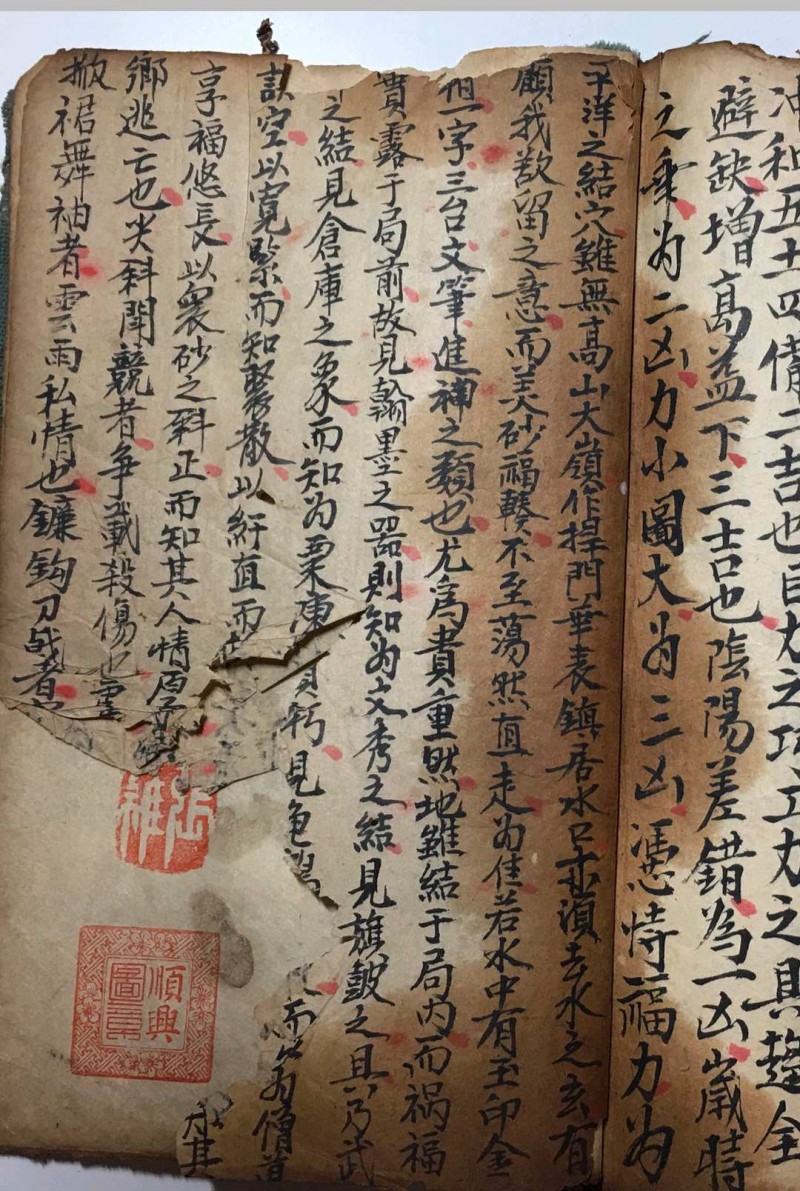 冲和五土四備二吉也目力之巧工力之具趨全
避缺增高益下三吉也陰陽差錯為一凶歲時
之乖为二凶力小圖大为三凶憑恃福力为
平洋之結穴雖無高山大嶺作捍門華表鎮居水口亦須去水之玄有
顧我欲留之意而美砂福輳不至蕩然直走为佳若水中有玉印金
相一字三台文筆進神之類也尤為貴重然地雖結于局内而禍福
貴露于局前故見翰墨之器則知为文秀之結見旗鼓之具乃武
之結見倉庫之象而知为粟陳貫朽見色
訣空以寬緊而知聚散以紆直而 而 为僧道
享福悠長以裳砂之斜正而知其人情厚
鄉逃亡也尖斜鬪競者争訟殺傷也
掀裙舞袖者雲雨私情也鐮鈎刀戈者
其
順興
圖章